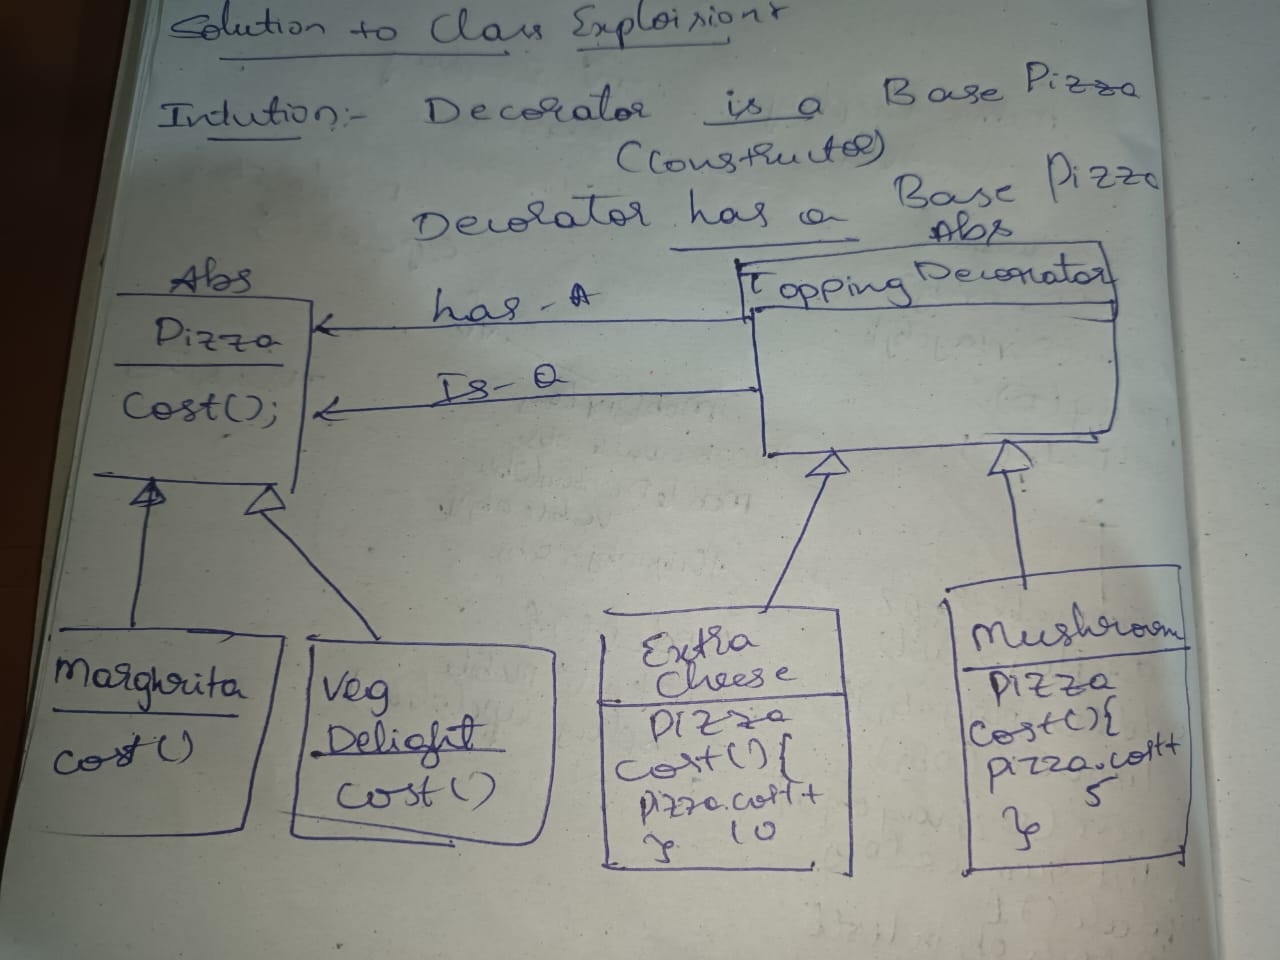 Solution to Class Exploisions
Intution:- Decorator is a Base Pizza
(Constructor)
Decorator has a Base Pizza
Abs
Pizza
Cost();
has-A
Is-a
Abs
Topping Decorator
Margherita
Cost()
Veg
Delight
Cost()
Extra
Cheese
Pizza
Cost(){
pizza.cost+
10
}
Mushroom
Pizza
Cost(){
pizza.cost+
5
}